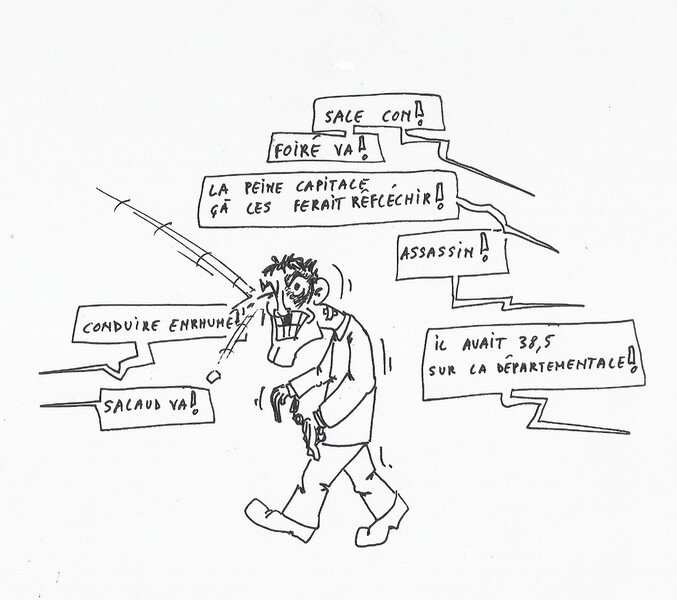 SALE CON!
FOIRÉ VA!
LA PEINE CAPITALE
ÇÀ LES FERAIT RÉFLÉCHIR!
ASSASSIN!
CONDUIRE ENRHUMÉ!
IL AVAIT 38,5
SUR LA DÉPARTEMENTALE!
SALAUD VA!